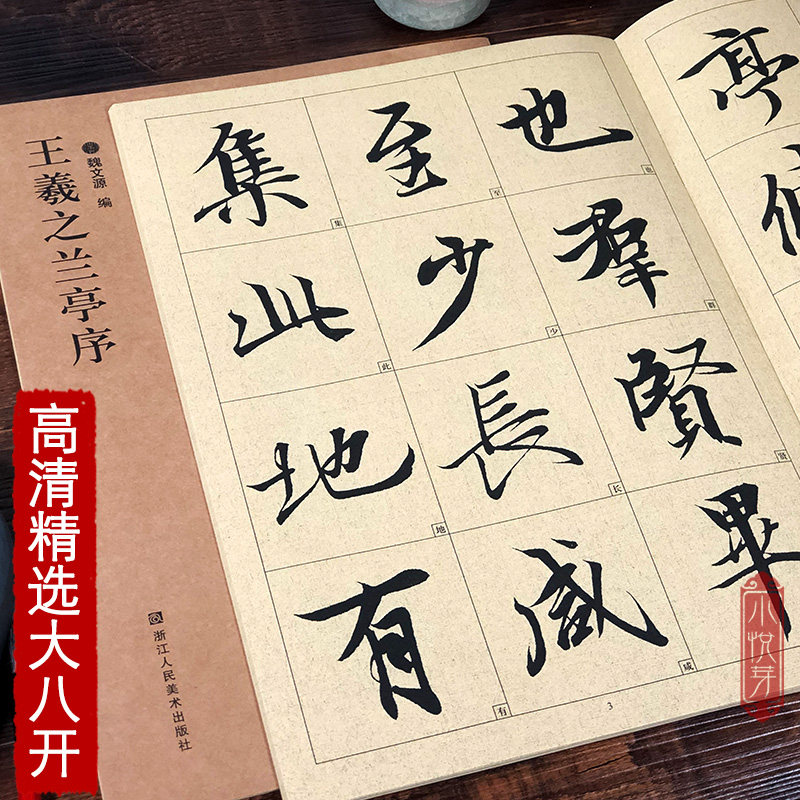 王羲之兰亭序
魏文源 编
浙江人民美术出版社
高清精选大八开
亭
也羣賢畢
也群贤
至少長咸
至少长咸
集此地有
集此地有
3